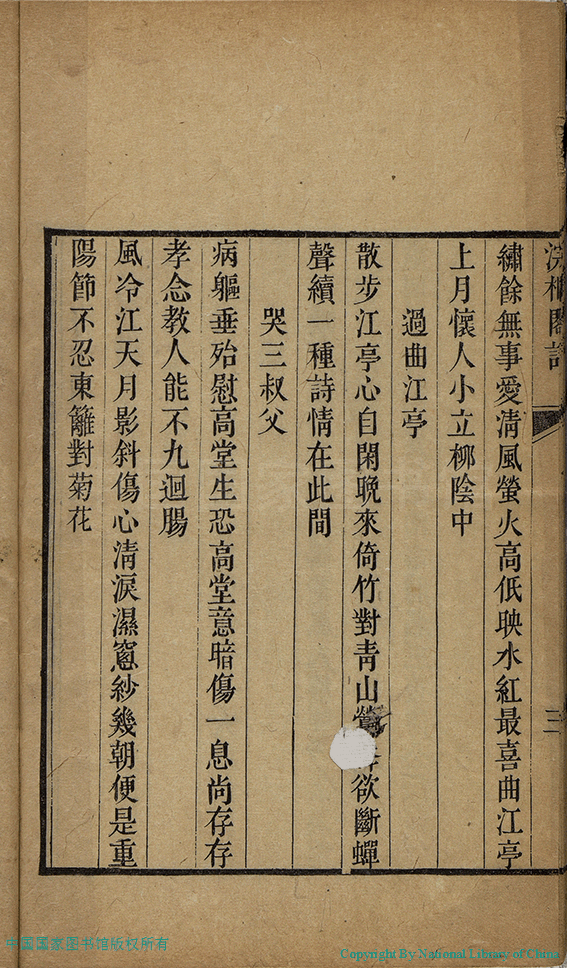 三
繡餘無事愛清風螢火高低映水紅最喜曲江亭
上月懷人小立柳陰中
過曲江亭
散步江亭心自閑晚來倚竹對青山鶯欲斷蟬
聲續一種詩情在此間
哭三叔父
病軀垂殆慰高堂生恐高堂意暗傷一息尚存存
孝念教人能不九迴腸
風冷江天月影斜傷心清淚濕窻紗幾朝便是重
陽節不忍東籬對菊花
中国国家图书馆版权所有
Copyright By National Library of China